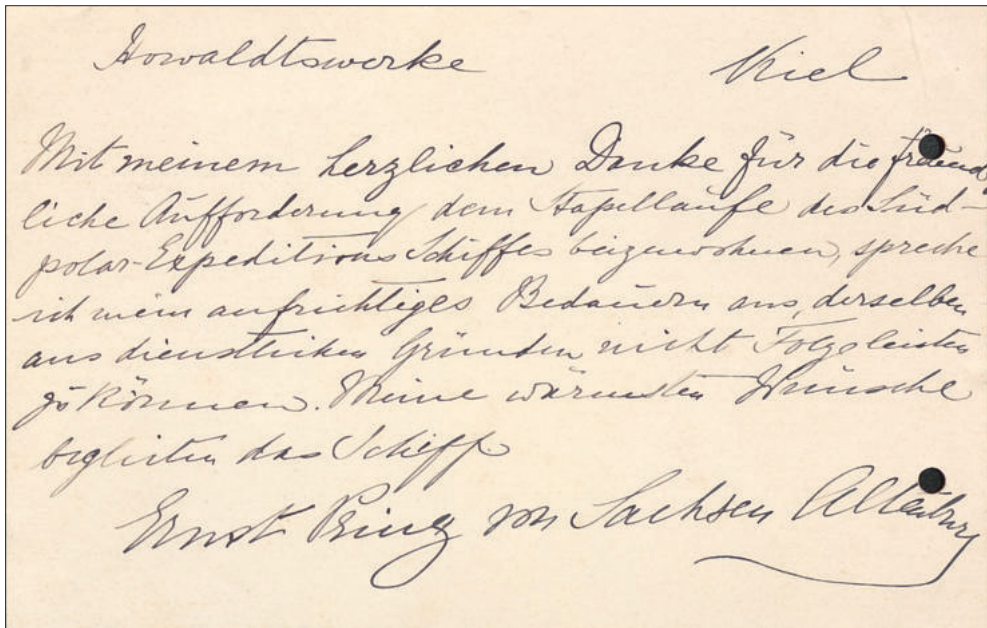 Howaldtswerke Kiel
Mit meinem herzlichen Danke für die freund
liche Aufforderung dem Stapellaufe des Süd-
polar-Expeditions Schiffes beizuwohnen, spreche
ich mein aufrichtiges Bedauern aus, derselben
aus dienstlichen Gründen nicht Folge leisten
zu können. Meine wärmsten Wünsche
begleiten das Schiff.
Ernst Prinz von Sachsen Altenburg